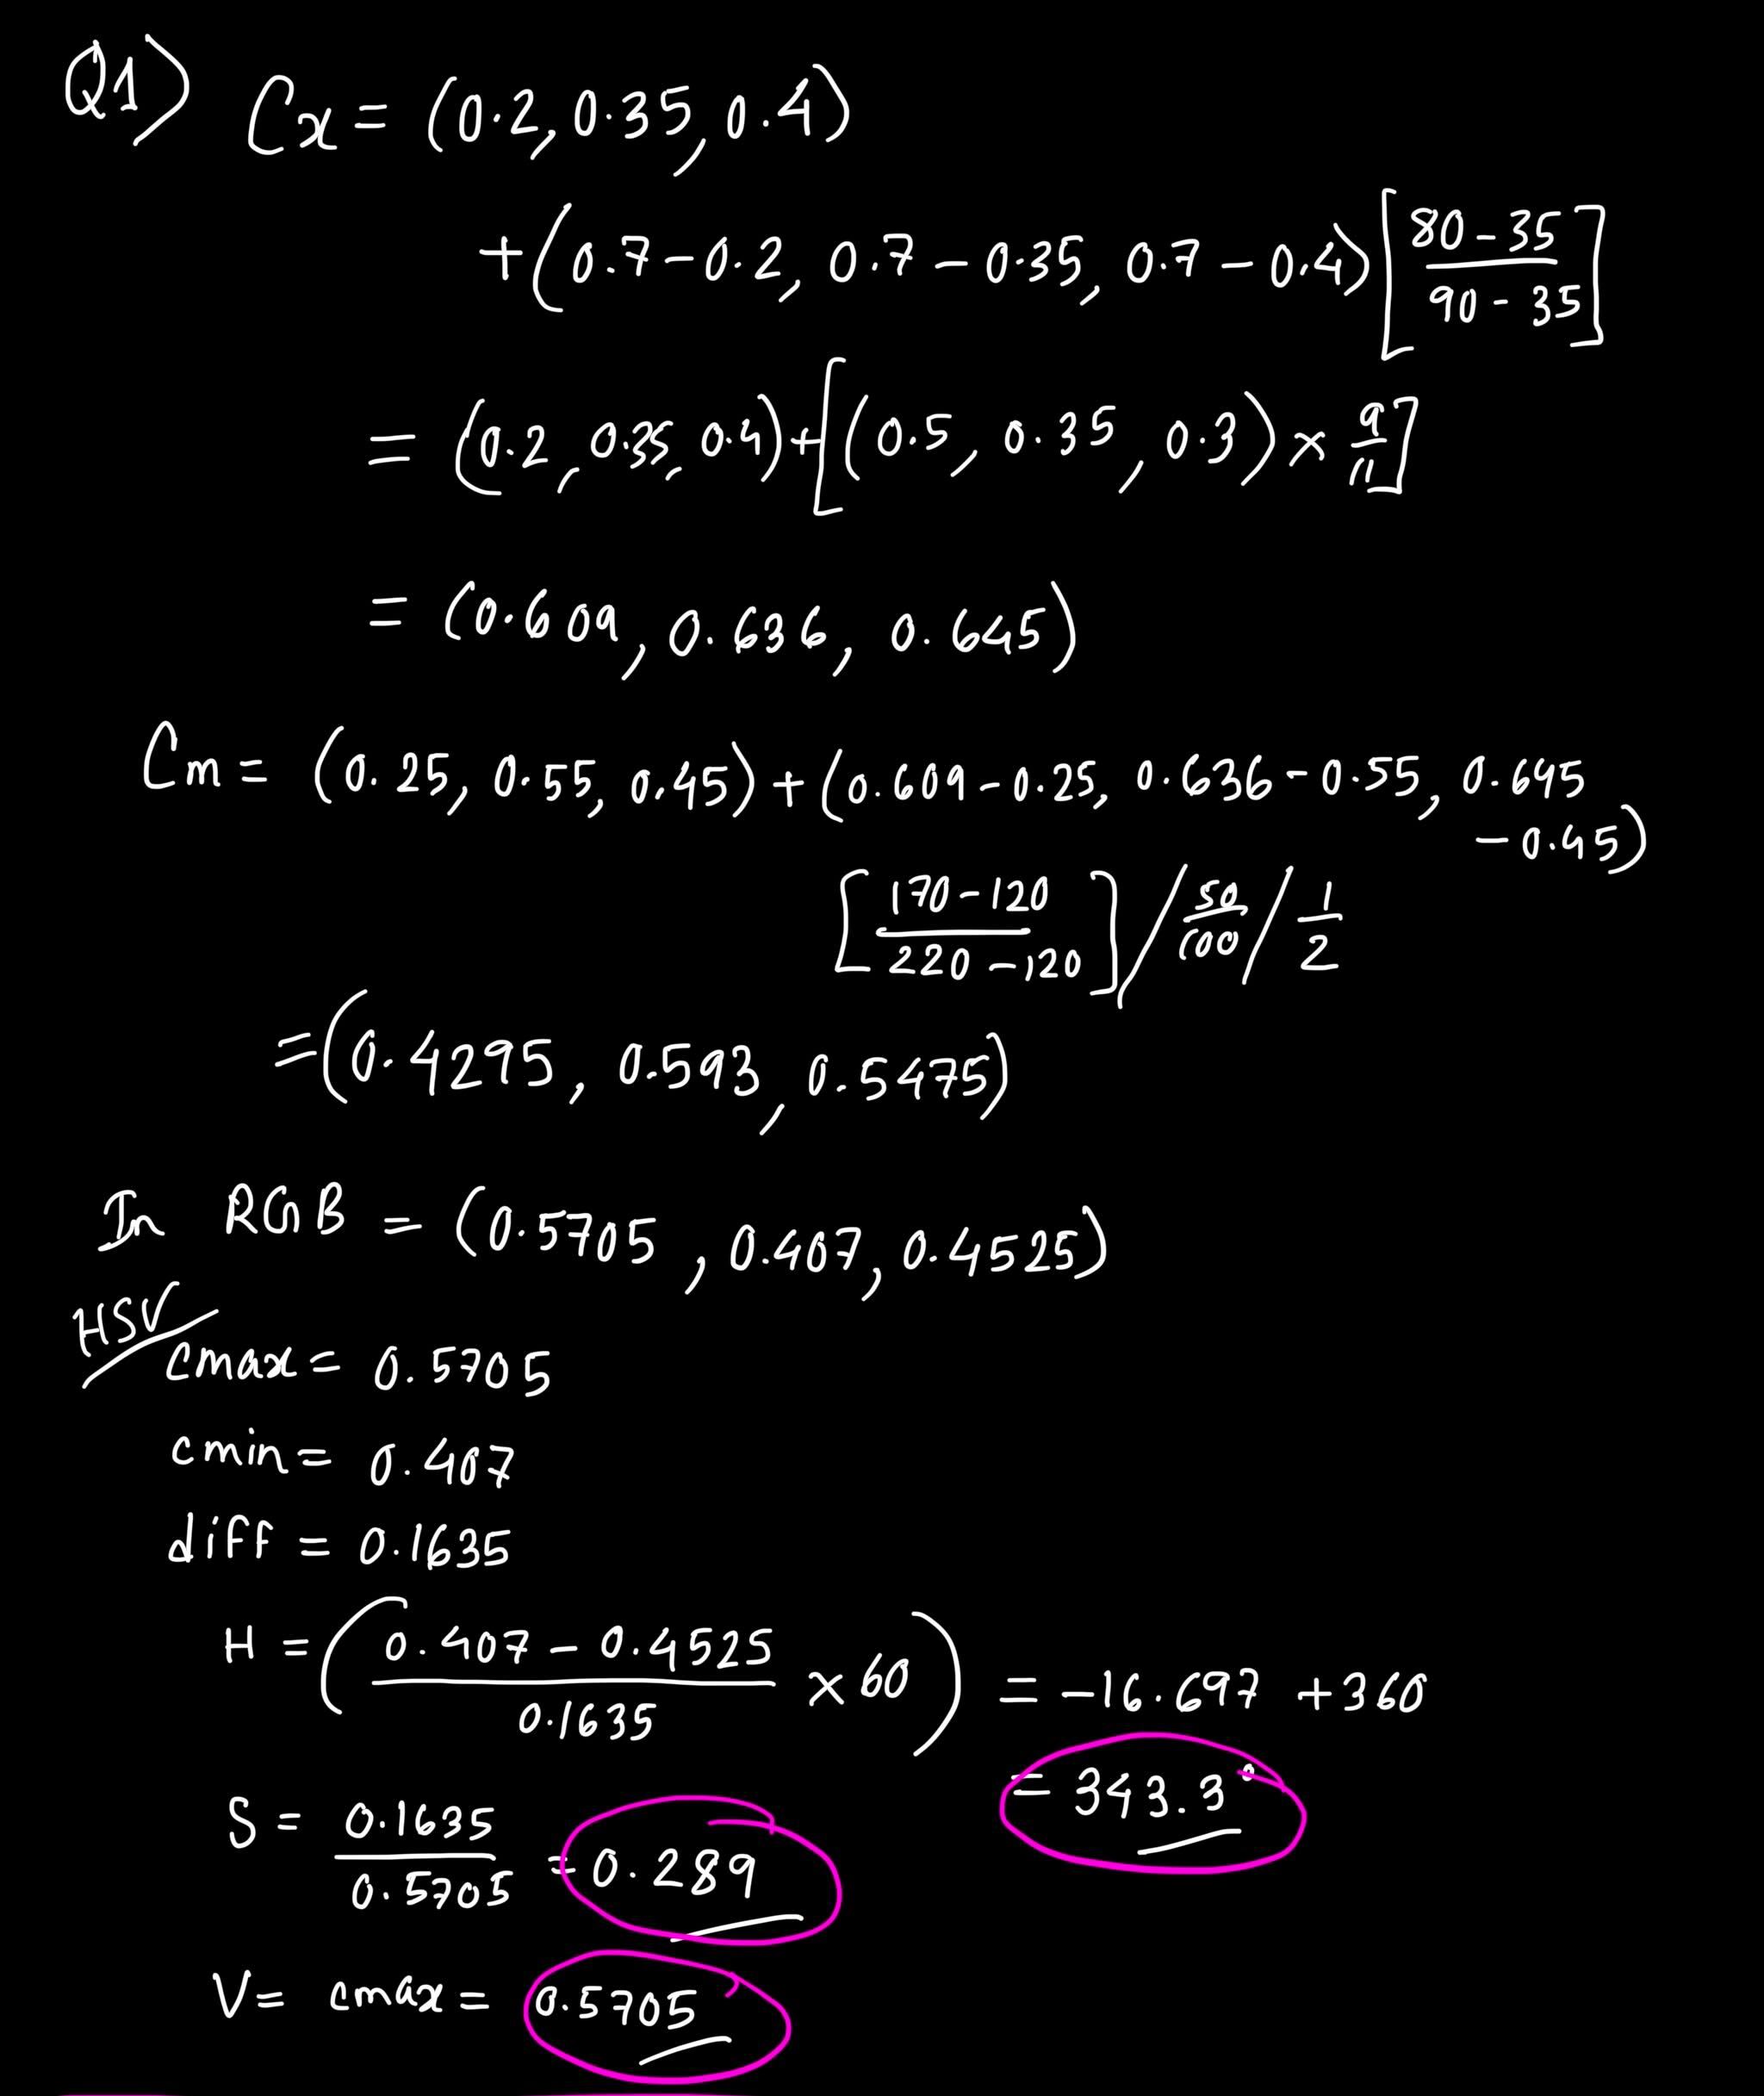 Q1) Cx = (0.2, 0.35, 0.4)
+ (0.7 - 0.2, 0.7 - 0.35, 0.7 - 0.4) [80 - 35 / 90 - 35]
= (0.2, 0.35, 0.4) + [(0.5, 0.35, 0.3) × 9/11]
= (0.609, 0.636, 0.645)
Cm = (0.25, 0.55, 0.45) + (0.609 - 0.25, 0.636 - 0.55, 0.645
- 0.45)
[170 - 120 / 220 - 120] / 50/100 / 1/2
= (0.4295, 0.593, 0.5475)
In RGB = (0.5705, 0.407, 0.4525)
HSV
cmax = 0.5705
cmin = 0.407
diff = 0.1635
H = (0.407 - 0.4525 / 0.1635 × 60) = -16.697 + 360
= 343.3°
S = 0.1635 / 0.5705 = 0.289
V = cmax = 0.5705